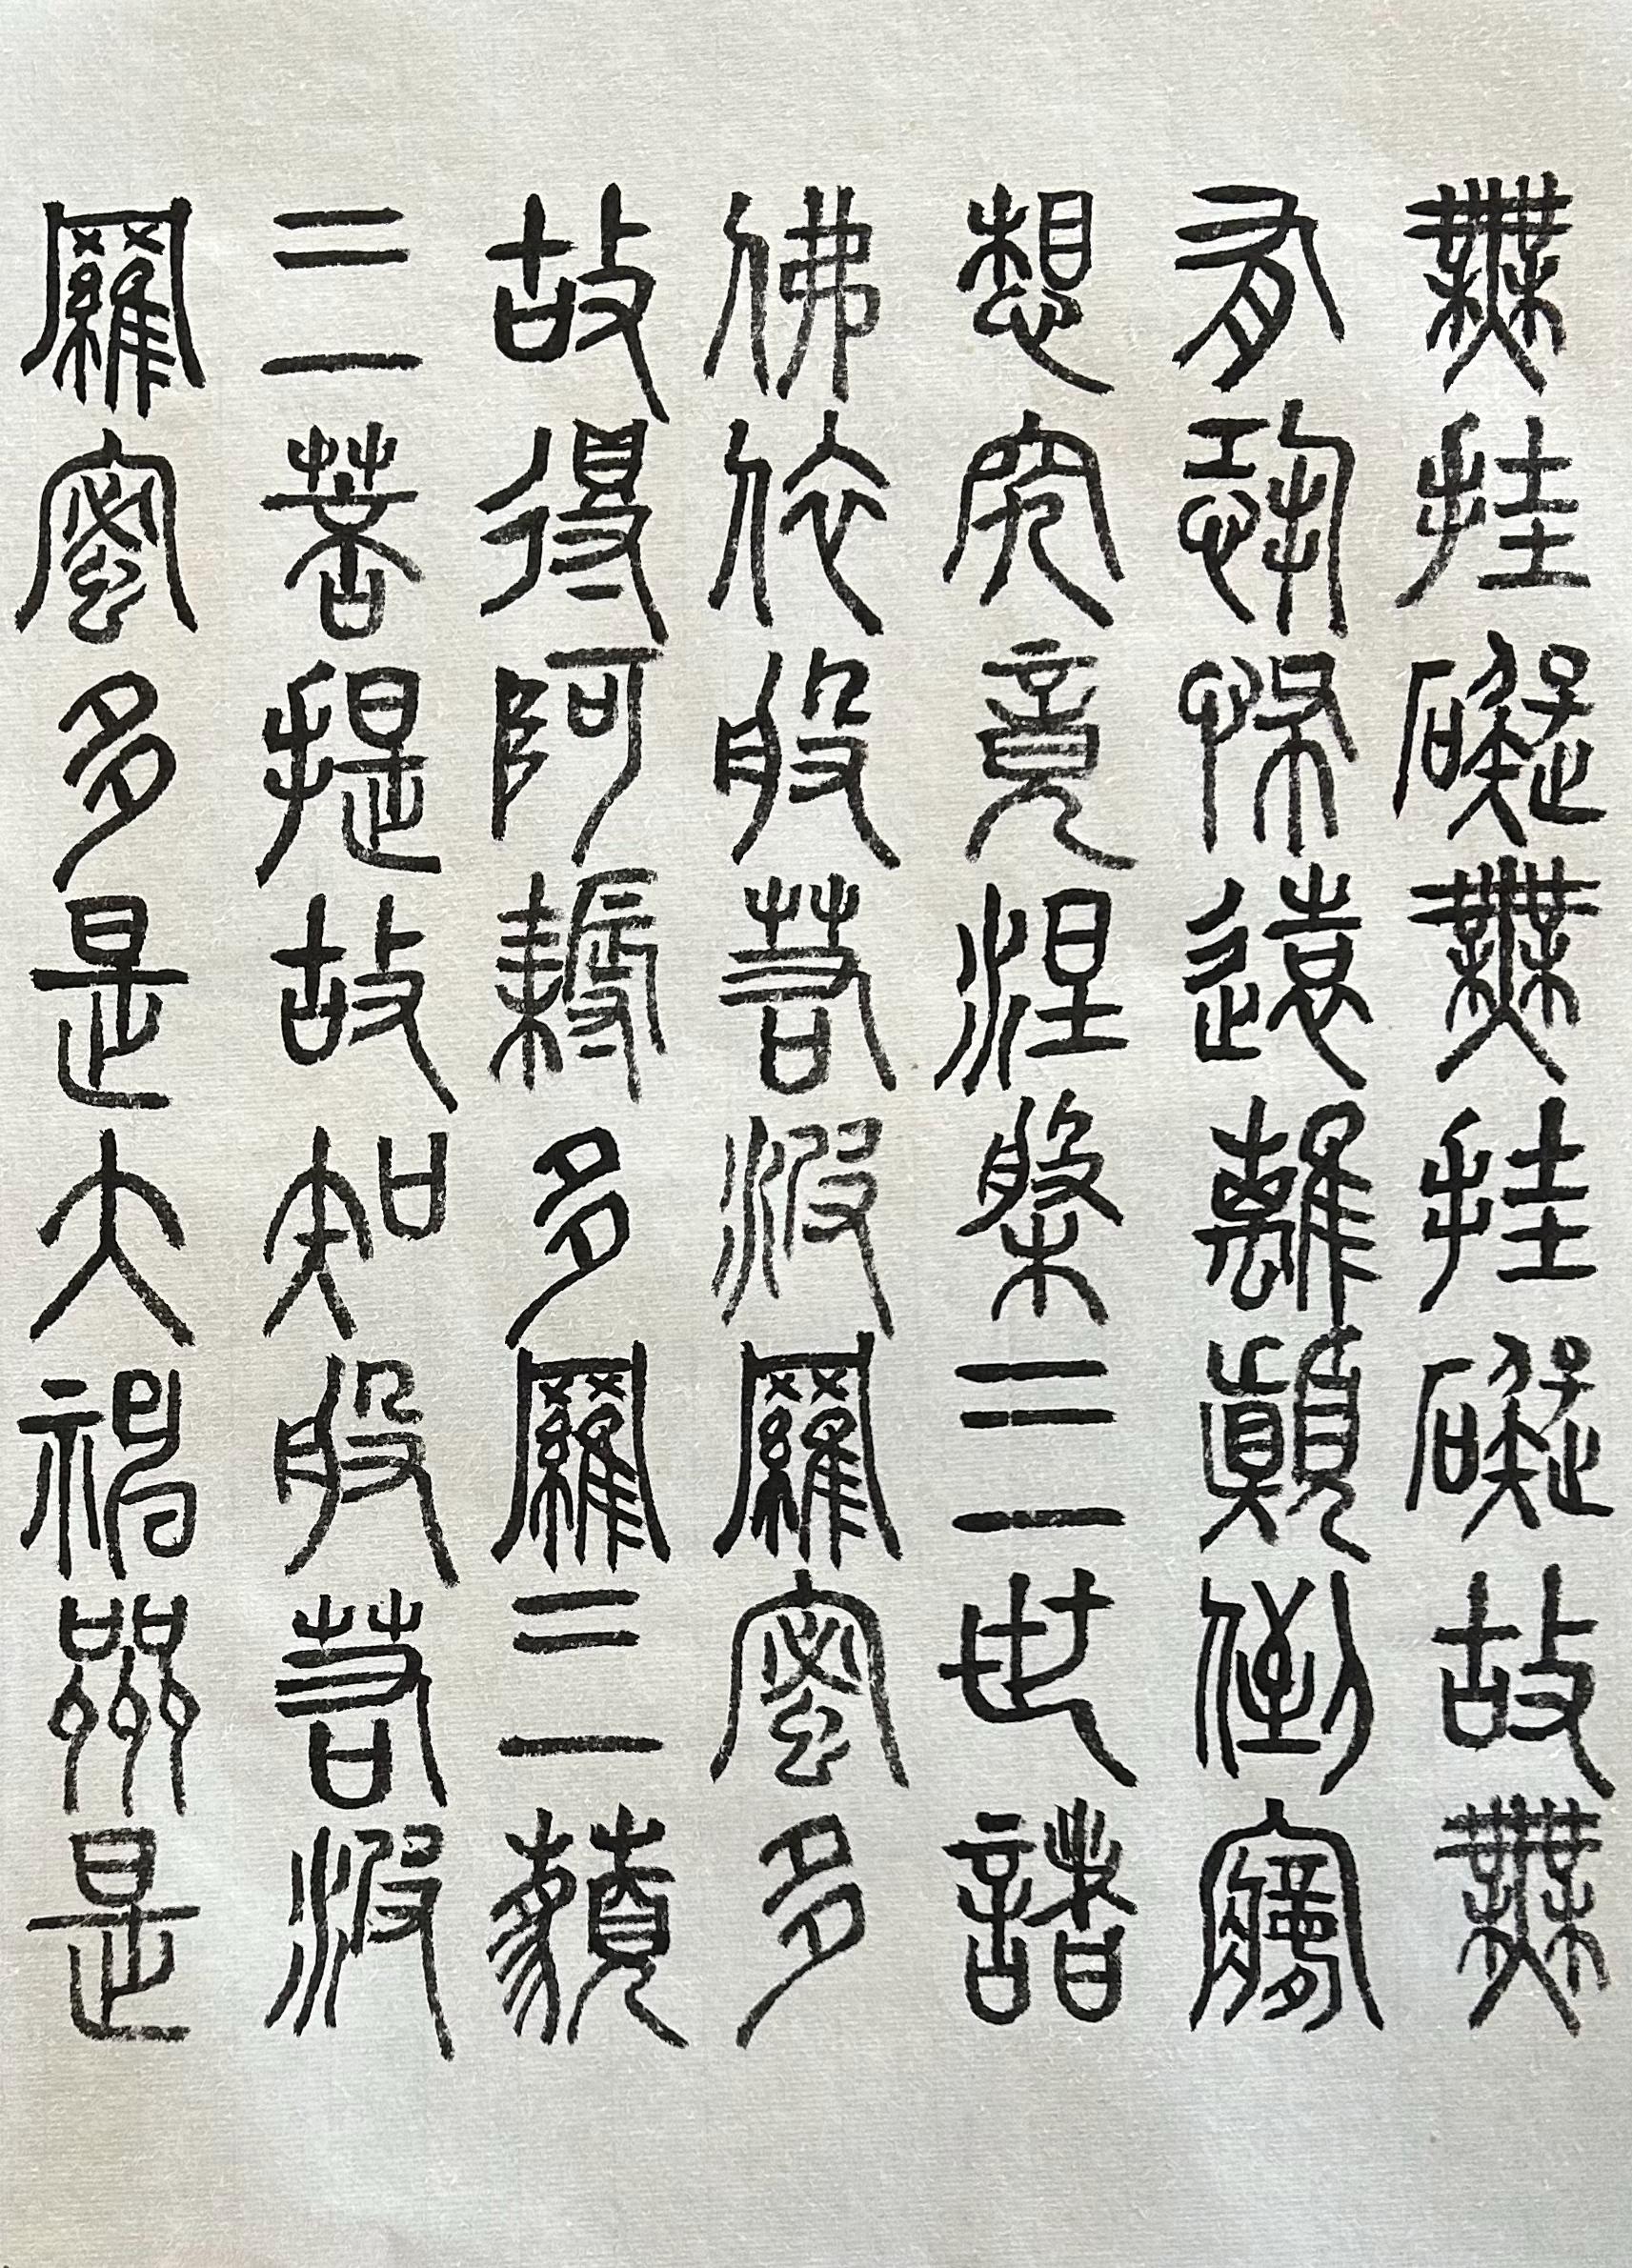 無挂礙無挂礙故無
有恐怖遠離顛倒夢
想究竟涅槃三世諸
佛依般若波羅蜜多
故得阿耨多羅三藐
三菩提故知般若波
羅蜜多是大神咒是